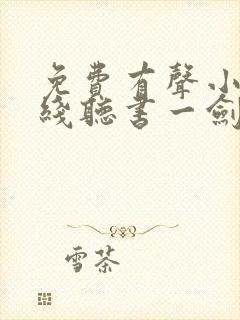 免費有聲小
綫聽書一劍
雪茶